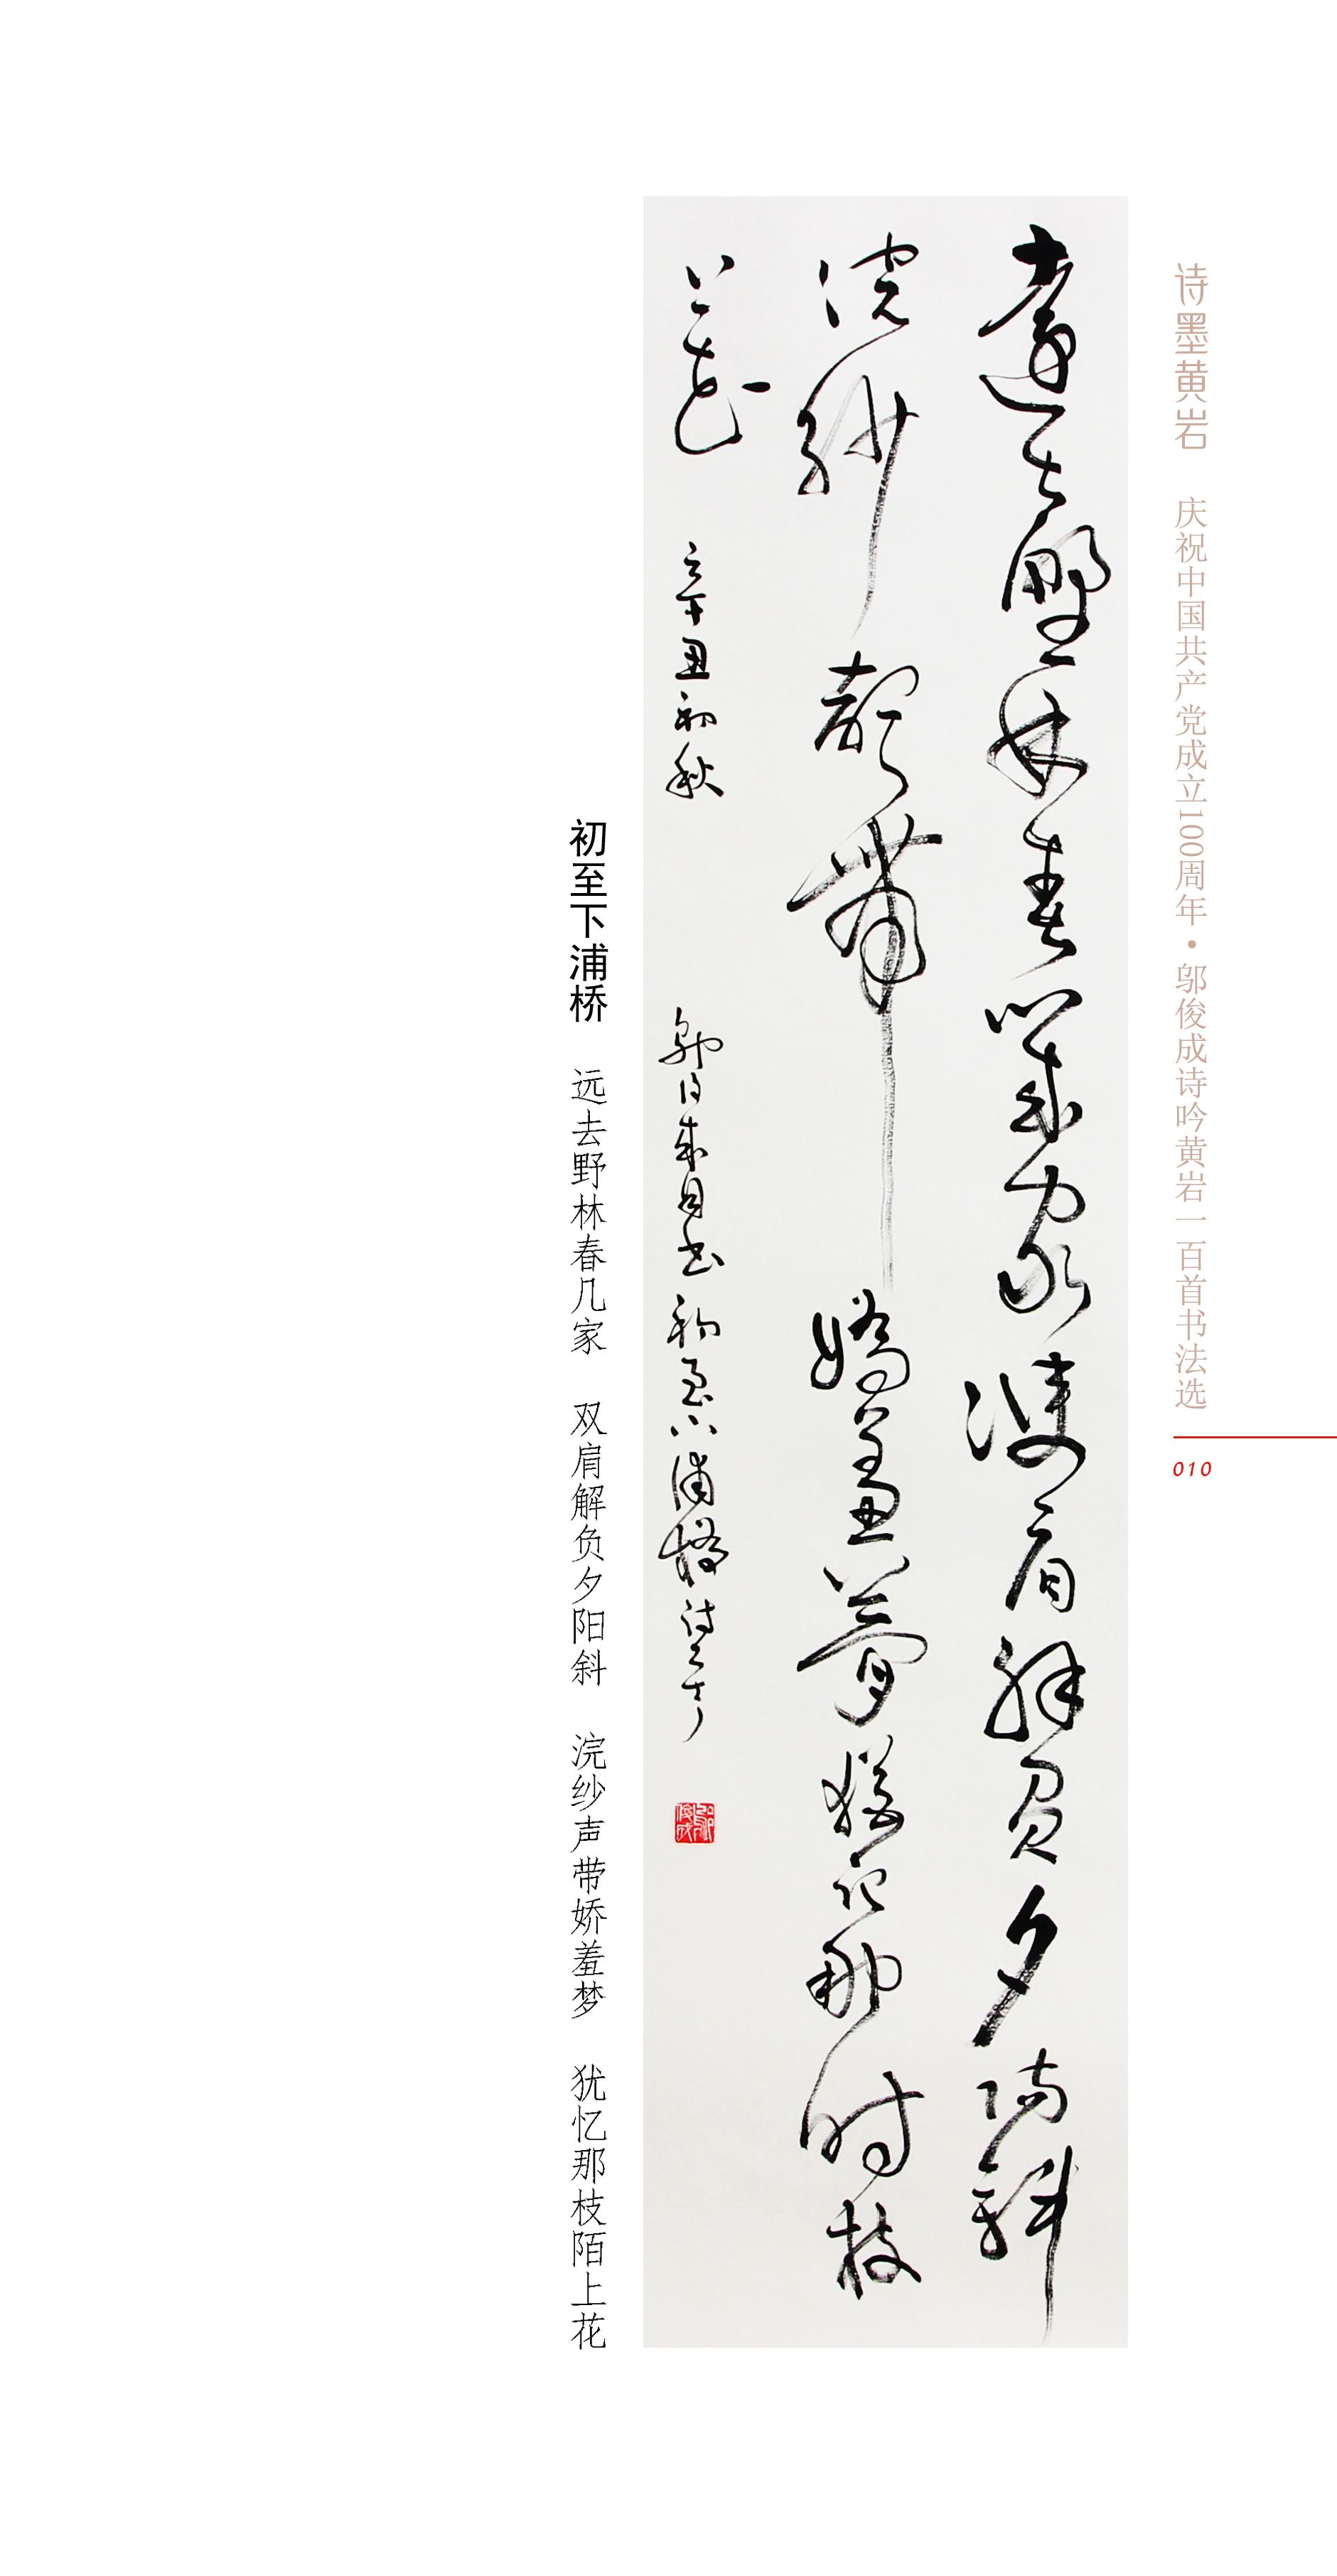 诗墨黄岩 庆祝中国共产党成立100周年•邬俊成诗吟黄岩一百首书法选
010
远去野林春几家双肩解负夕阳斜
浣纱声带娇羞梦犹记那时枝
上花 辛丑初秋 邬俊成自书初至下浦桥诗一首
初至下浦桥 远去野林春几家 双肩解负夕阳斜 浣纱声带娇羞梦 犹忆那枝陌上花